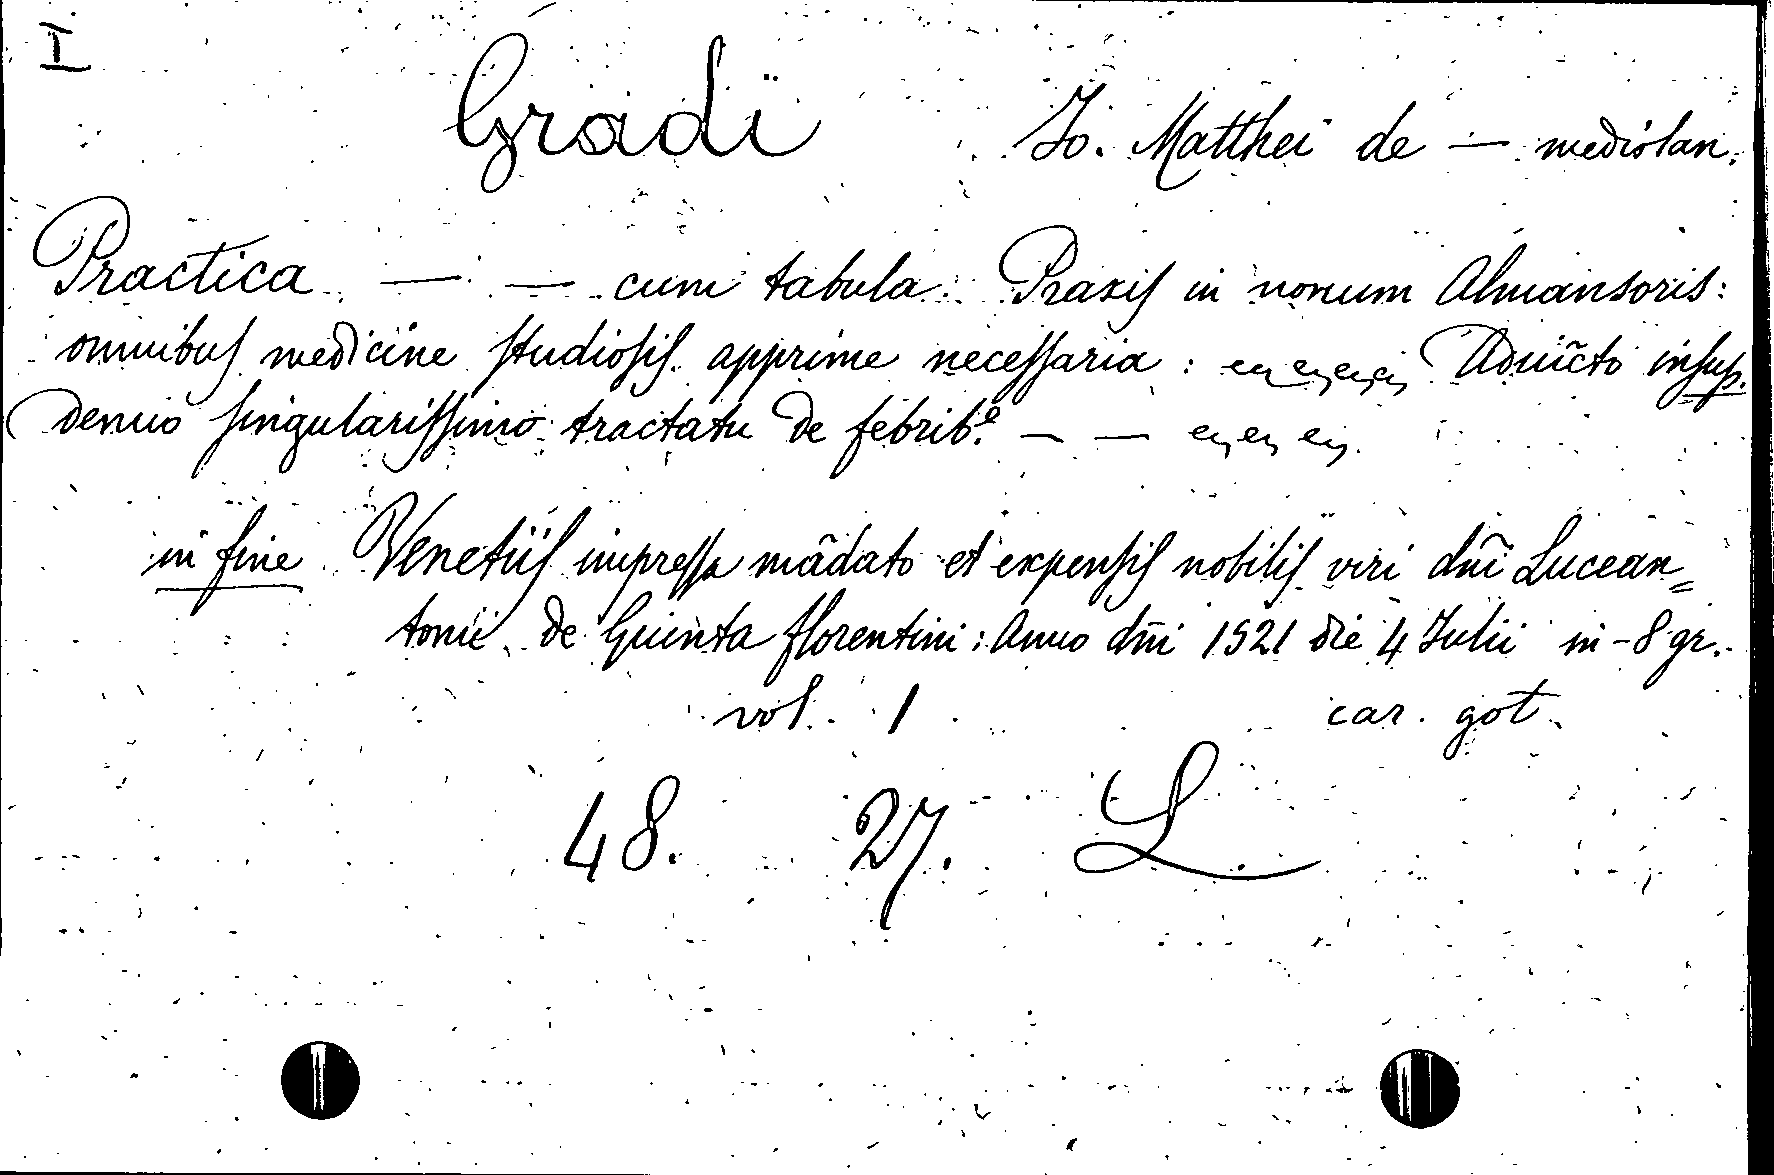 I
Gradi Jo. Matthei de — mediolan.
Practica — — cum tabula Praxis in nonum Almansoris:
omnibus medicine studiosis apprime necessaria: Aduīcto insup.
denuo singularissimo tractatu de febrib.9 — —
in fine Venetiis impressa mādato et expensis nobilis viri dn̄i Lucean=
tonii de Giunta florentini: Anno dn̄i 1521 die 4 Julii in-8 gr.
vol. 1 car. got.
48. 27. L.